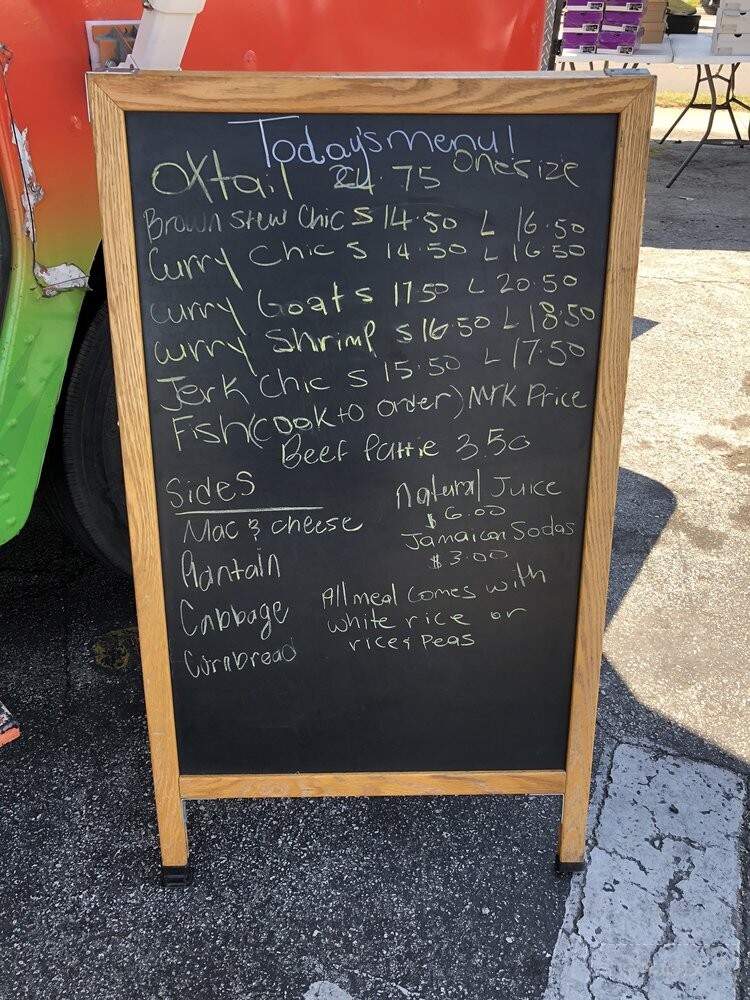 Today's menu!
Oxtail 24.75 One size
Brown Stew Chic S 14.50 L 16.50
Curry Chic S 14.50 L 16.50
Curry Goat S 17.50 L 20.50
Curry Shrimp S 16.50 L 18.50
Jerk Chic S 15.50 L 17.50
Fish (Cook to order) Mrk Price
Beef Pattie 3.50
Sides
Mac & cheese
Plantain
Cabbage
Cornbread
Natural Juice
$6.00
Jamaican Sodas
$3.00
All meal comes with
white rice or
rice & Peas